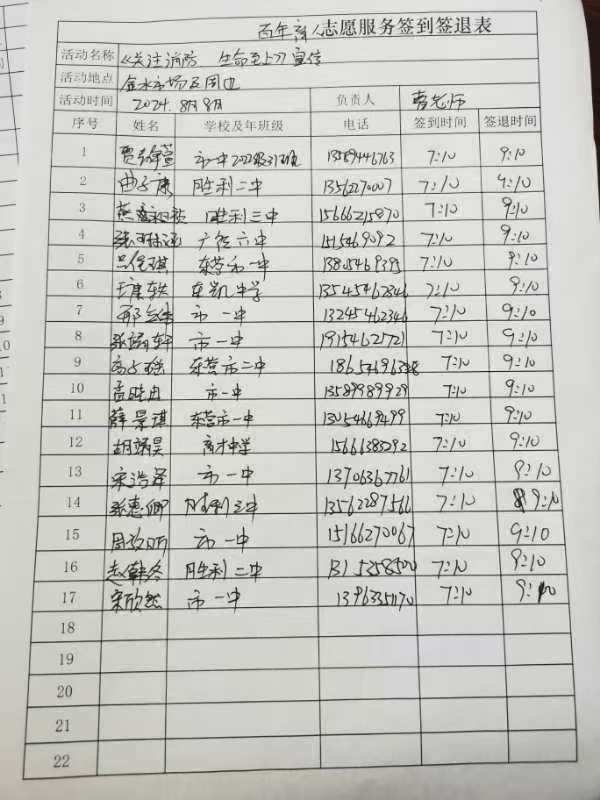 百年育人志愿服务签到签退表
活动名称 《关注消防 生命至上》宣传
活动地点 金水市场及周边
活动时间 2024.8月8月 负责人 曹老师
序号 姓名 学校及年班级 电话 签到时间 签退时间
1 市一中 13589446763 7:10 9:10
2 曲子康 胜利二中 1356270007 7:10 9:10
3 胜利三中 15666215870 7:10 9:10
4 广饶六中 1515469092 7:10 9:10
5 东营市一中 7:10 9:10
6 东凯中学 13545462846 7:10 9:10
7 市一中 13245462346 7:10 9:10
8 市一中 19154627721 7:10 9:10
9 东营市二中 7:10 9:10
10 孟晓冉 市一中 13589989929 7:10 9:10
11 薛景琪 东营市一中 13054669499 7:10 9:10
12 胡靖昊 育才中学 15661383292 7:10 9:10
13 宋浩泽 市一中 13706367761 7:10 9:10
14 张惠卿 胜利三中 13562287566 7:10 9:10
15 市一中 15166270067 7:10 9:10
16 赵韩冬 胜利二中 1315258500 7:10 9:10
17 宋欣然 市一中 13963351170 7:10 9:10
18
19
20
21
22